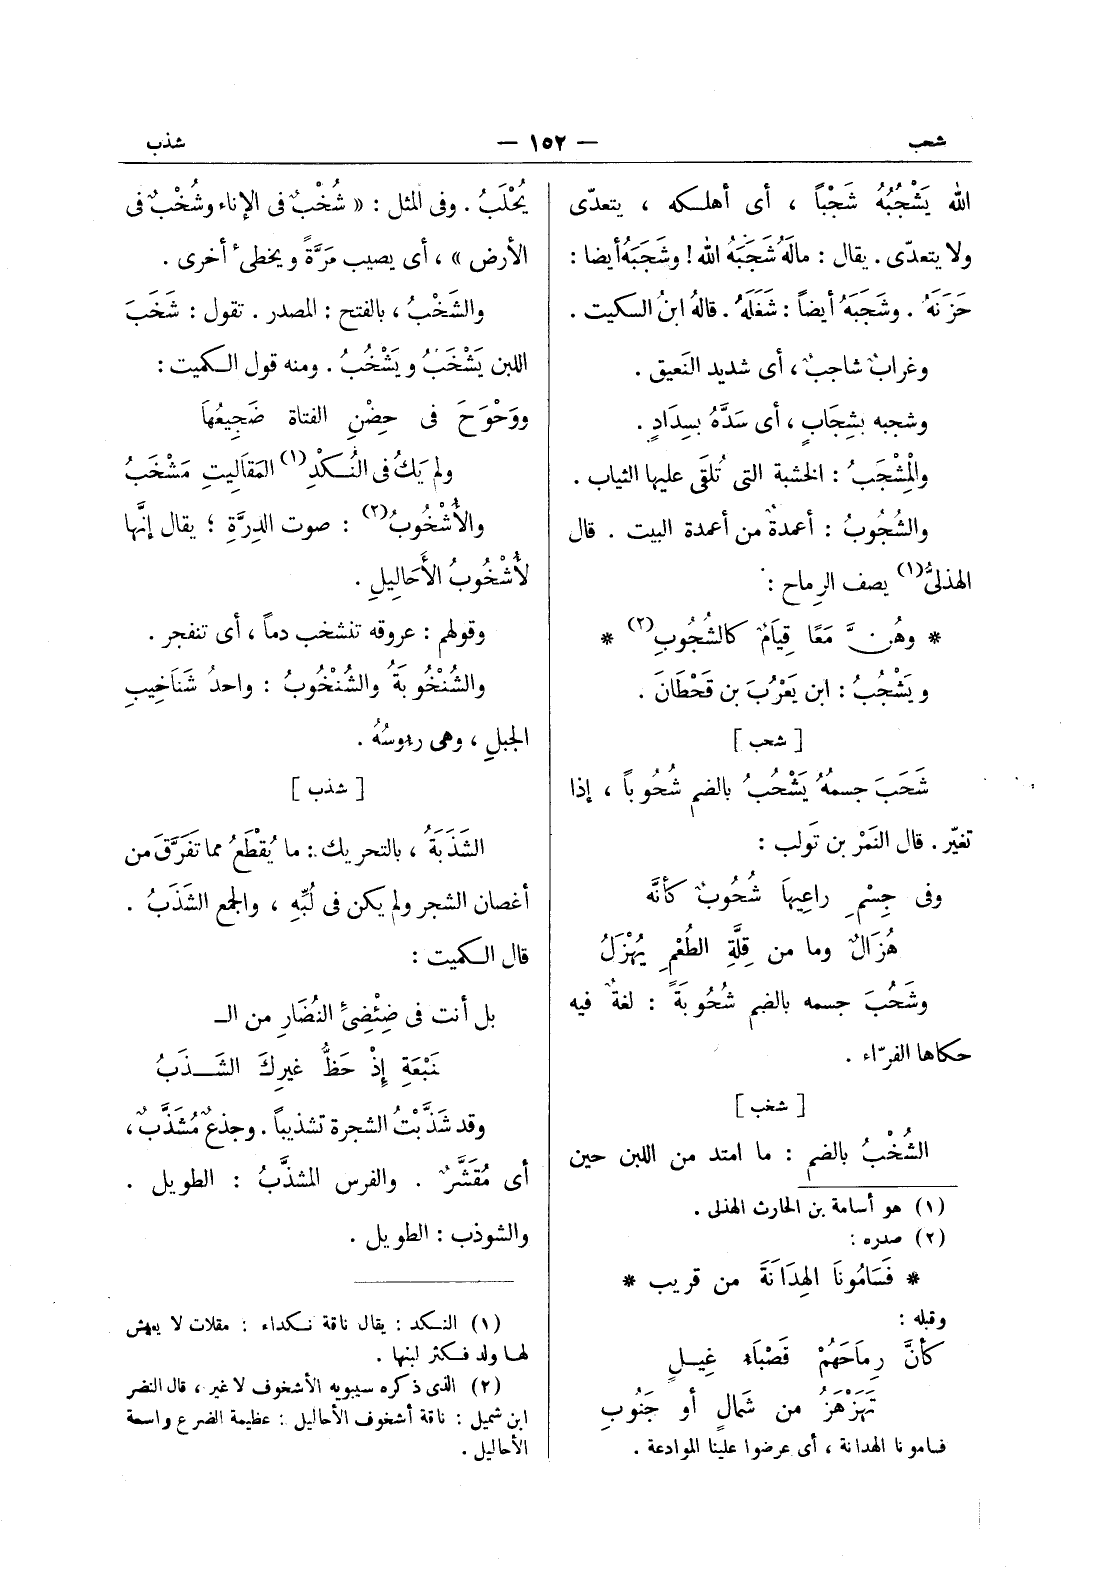 شحب — ١٥٢ — شذب
الله يَشْجُبُهُ شَجْباً ، أى أهلكه ، يتعدّى
ولا يتعدّى . يقال : مالَهُ شَجَبَهُ الله ! وشَجَبَهُ أيضا :
حَزَنَهُ . وشَجَبَهُ أيضاً : شَغَلَهُ . قالهُ ابنُ السكيت .
وغرابٌ شاجبٌ ، أى شديد النَعيق .
وشجبه بِشِجَابٍ ، أى سَدَّهُ بسِدَادٍ .
والْمِشْجَبُ : الخشبة التى تُلقَى عليها الثياب .
والشُجُوبُ : أعمدةٌ من أعمدة البيت . قال
الهذلىُّ (١) يصف الرِماح :
* وهُنَّ مَعًا قِيَامٌ كالشُجُوبِ (٢) *
ويَشْجُبُ : ابن يَعْرُبَ بن قَحْطَانَ .
[ شحب ]
شَحَبَ جسمهُ يَشْحُبُ بالضم شُحُوباً ، إذا
تغيّر . قال النَمْر بن تَولب :
وفى جِسْمِ راعِيهاَ شُحُوبٌ كأنَّه
هُزَالٌ وما من قِلَّةِ الطُعْمِ يُهْزَلُ
وشَحُبَ جسمه بالضم شُحُوبَةً : لغةٌ فيه
حكاها الفرّاء .
[ شخب ]
الشُخْبُ بالضم : ما امتد من اللبن حين
(١) هو أسامة بن الحارث الهذلى .
(٢) صدره :
* فَسَامُونَا الهِدَانَةَ من قريب *
وقبله :
كأنَّ رِمَاحَهُمْ قَصْبَاءُ غِيلٍ
تَهَزْهَزُ من شَمَالٍ أو جَنُوبِ
فسامونا الهدانة ، أى عرضوا علينا الموادعة .
يُحْلَبُ . وفى المثل : « شُخْبٌ فى الإناء وشُخْبٌ فى
الأرض » ، أى يصيب مَرَّةً ويخطئ أخرى .
والشَخْبُ ، بالفتح : المصدر . تقول : شَخَبَ
اللبن يَشْخَبُ ويَشْخُبُ . ومنه قول الكميت :
ووَحْوَحَ فى حِضْنِ الفتاة ضَجِيعُهاَ
ولم يَكُ فى النُكْدِ (١) المَقاَلِيتِ مَشْخَبُ
والأُشْخُوبُ (٢) : صوت الدِرَّةِ ؛ يقال إنَّها
لأُشْخُوبُ الأَحَالِيلِ .
وقولهم : عروقه تنشخب دماً ، أى تنفجر .
والشُنْخُوبَةُ والشُنْخُوبُ : واحدُ شَنَاخِيبِ
الجبلِ ، وهى رءوسُهُ .
[ شذب ]
الشَذَبَةُ ، بالتحريك : ما يُقْطَعُ مما تَفَرَّقَ من
أغصان الشجر ولم يكن فى لُبِّهِ ، والجمع الشَذَبُ .
قال الكميت :
بل أنت فى ضِئْضِئِ النُضَارِ من الـ
نَبْعَةِ إذْ حَظُّ غيرِكَ الشَذَبُ
وقد شَذَّبْتُ الشجرة تشذيباً . وجذعٌ مُشَذَّبٌ ،
أى مُقَشَّرٌ . والفرس المشذَّبُ : الطويل .
والشوذب : الطويل .
(١) النكد : يقال ناقة نكداء : مقلات لا يعيش
لها ولد فكثر لبنها .
(٢) الذى ذكره سيبويه الأشخوف لا غير ، قال النضر
ابن شميل : ناقة أشخوف الأحاليل : عظيمة الضرع واسعة
الأحاليل .